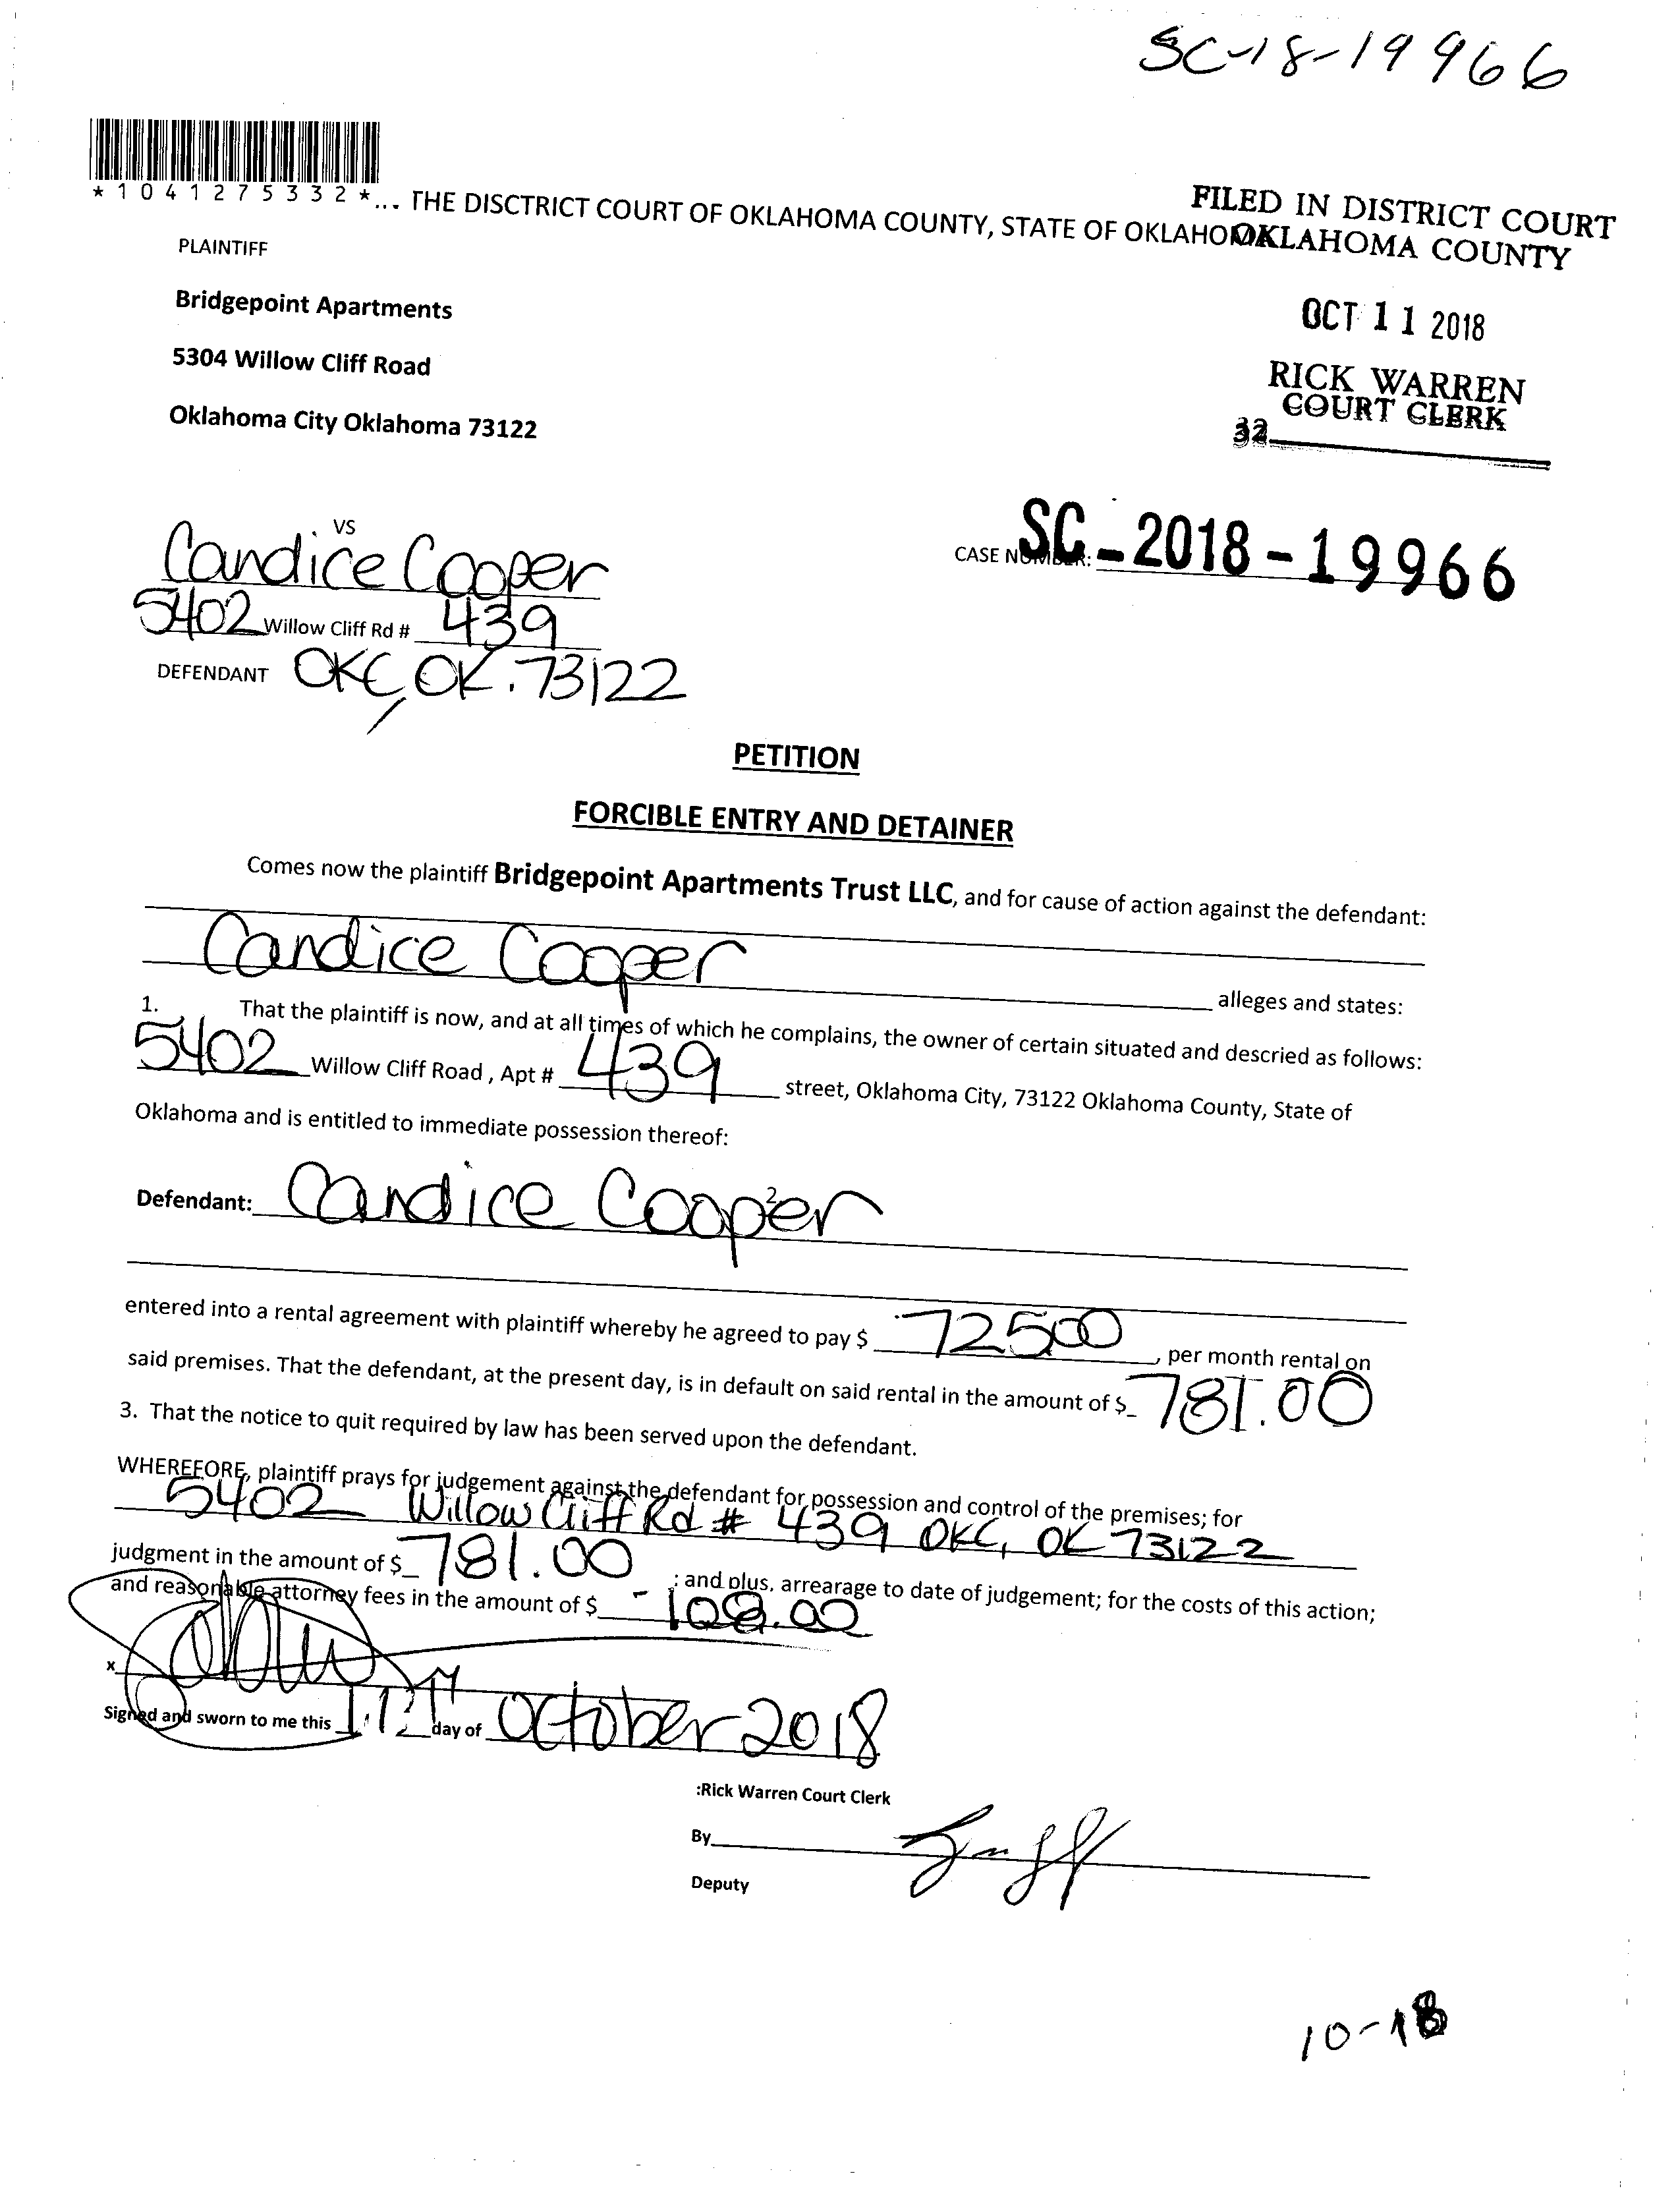 SC-18-19966
*1041275332*... THE DISCTRICT COURT OF OKLAHOMA COUNTY, STATE OF OKLAHO
FILED IN DISTRICT COURT
OKLAHOMA COUNTY
OCT 11 2018
RICK WARREN
COURT CLERK
32
PLAINTIFF
Bridgepoint Apartments
5304 Willow Cliff Road
Oklahoma City Oklahoma 73122
VS
Candice Cooper
5402 Willow Cliff Rd # 439
DEFENDANT OKC, OK. 73122
CASE NUMBER: SC-2018-19966
PETITION
FORCIBLE ENTRY AND DETAINER
Comes now the plaintiff Bridgepoint Apartments Trust LLC, and for cause of action against the defendant:
Candice Cooper alleges and states:
1. That the plaintiff is now, and at all times of which he complains, the owner of certain situated and descried as follows:
5402 Willow Cliff Road , Apt # 439 street, Oklahoma City, 73122 Oklahoma County, State of
Oklahoma and is entitled to immediate possession thereof:
2
Defendant: Candice Cooper
entered into a rental agreement with plaintiff whereby he agreed to pay $ 72500, per month rental on
said premises. That the defendant, at the present day, is in default on said rental in the amount of $ 781.00
3. That the notice to quit required by law has been served upon the defendant.
WHEREFORE, plaintiff prays for judgement against the defendant for possession and control of the premises; for
5402 Willow Cliff Rd # 439 OKC, OK 73122
judgment in the amount of $ 781.00 : and plus, arrearage to date of judgement; for the costs of this action;
and reasonable attorney fees in the amount of $
x
Signed and sworn to me this day of October 2018
:Rick Warren Court Clerk
By
Deputy
10-18